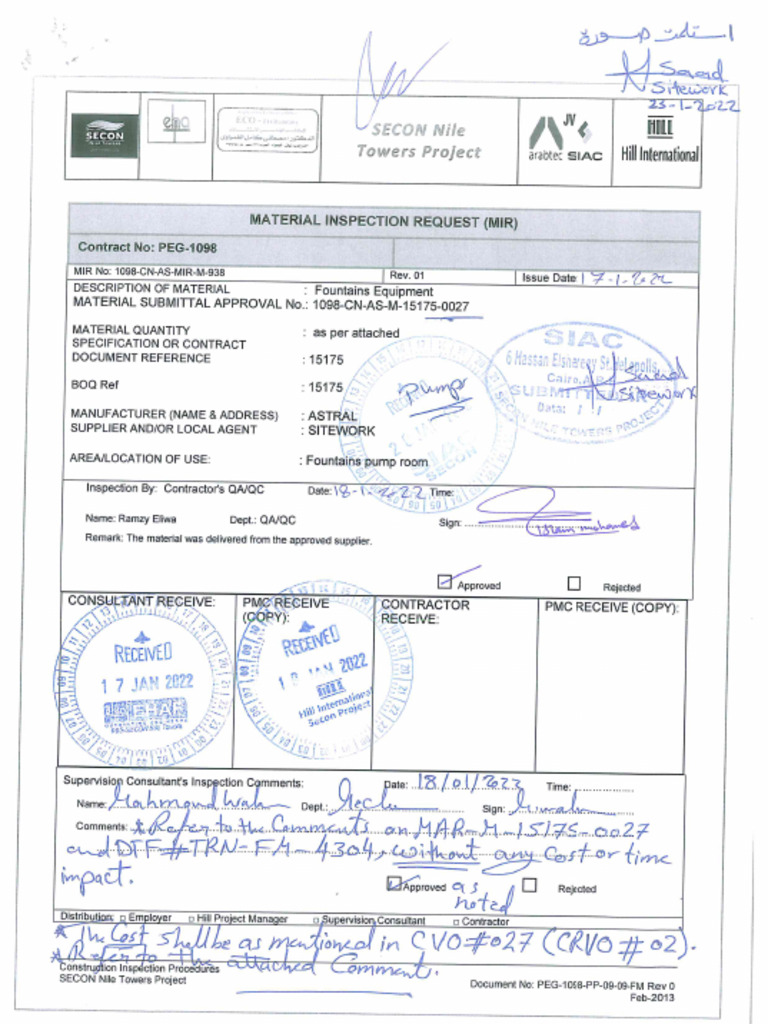 استلمت صورة
Saead
Sitework
23-1-2022
SECON
ECO
SECON Nile
Towers Project
JV
arabtec SIAC
HILL
Hill International
MATERIAL INSPECTION REQUEST (MIR)
Contract No: PEG-1098
MIR No: 1098-CN-AS-MIR-M-938 Rev. 01 Issue Date 17-1-2022
DESCRIPTION OF MATERIAL : Fountains Equipment
MATERIAL SUBMITTAL APPROVAL No.: 1098-CN-AS-M-15175-0027
MATERIAL QUANTITY : as per attached
SPECIFICATION OR CONTRACT
DOCUMENT REFERENCE : 15175
BOQ Ref : 15175
MANUFACTURER (NAME & ADDRESS) : ASTRAL
SUPPLIER AND/OR LOCAL AGENT : SITEWORK
AREA/LOCATION OF USE: : Fountains pump room
pump
SIAC
SECON
SIAC
6 Hassan Elshereey St. Heliopolis
Cairo
SUBMITTED
Date: / /
SECON NILE TOWERS PROJECT
Sitework
Inspection By: Contractor's QA/QC Date: 18-1-2022 Time:
Name: Ramzy Eliwa Dept.: QA/QC Sign:
Remark: The material was delivered from the approved supplier.
Approved Rejected
CONSULTANT RECEIVE: PMC RECEIVE (COPY): CONTRACTOR RECEIVE: PMC RECEIVE (COPY):
RECEIVED
17 JAN 2022
RECEIVED
JAN 2022
HILL
Hill International
Secon Project
Supervision Consultant's Inspection Comments: Date: 18/01/2022 Time:
Name: Mahmoud Dept.: Mech Sign:
Comments: * Refer to the Comments on MAR-M-15175-0027
and DTF # TRN-FM-4304, without any Cost or time
impact.
Approved as noted Rejected
Distribution: Employer Hill Project Manager Supervision Consultant Contractor
* The Cost shall be as mentioned in CVO #027 (CRVO # 02).
* Refer to the attached Comment.
Construction Inspection Procedures
SECON Nile Towers Project
Document No: PEG-1098-PP-09-09-FM Rev 0
Feb-2013